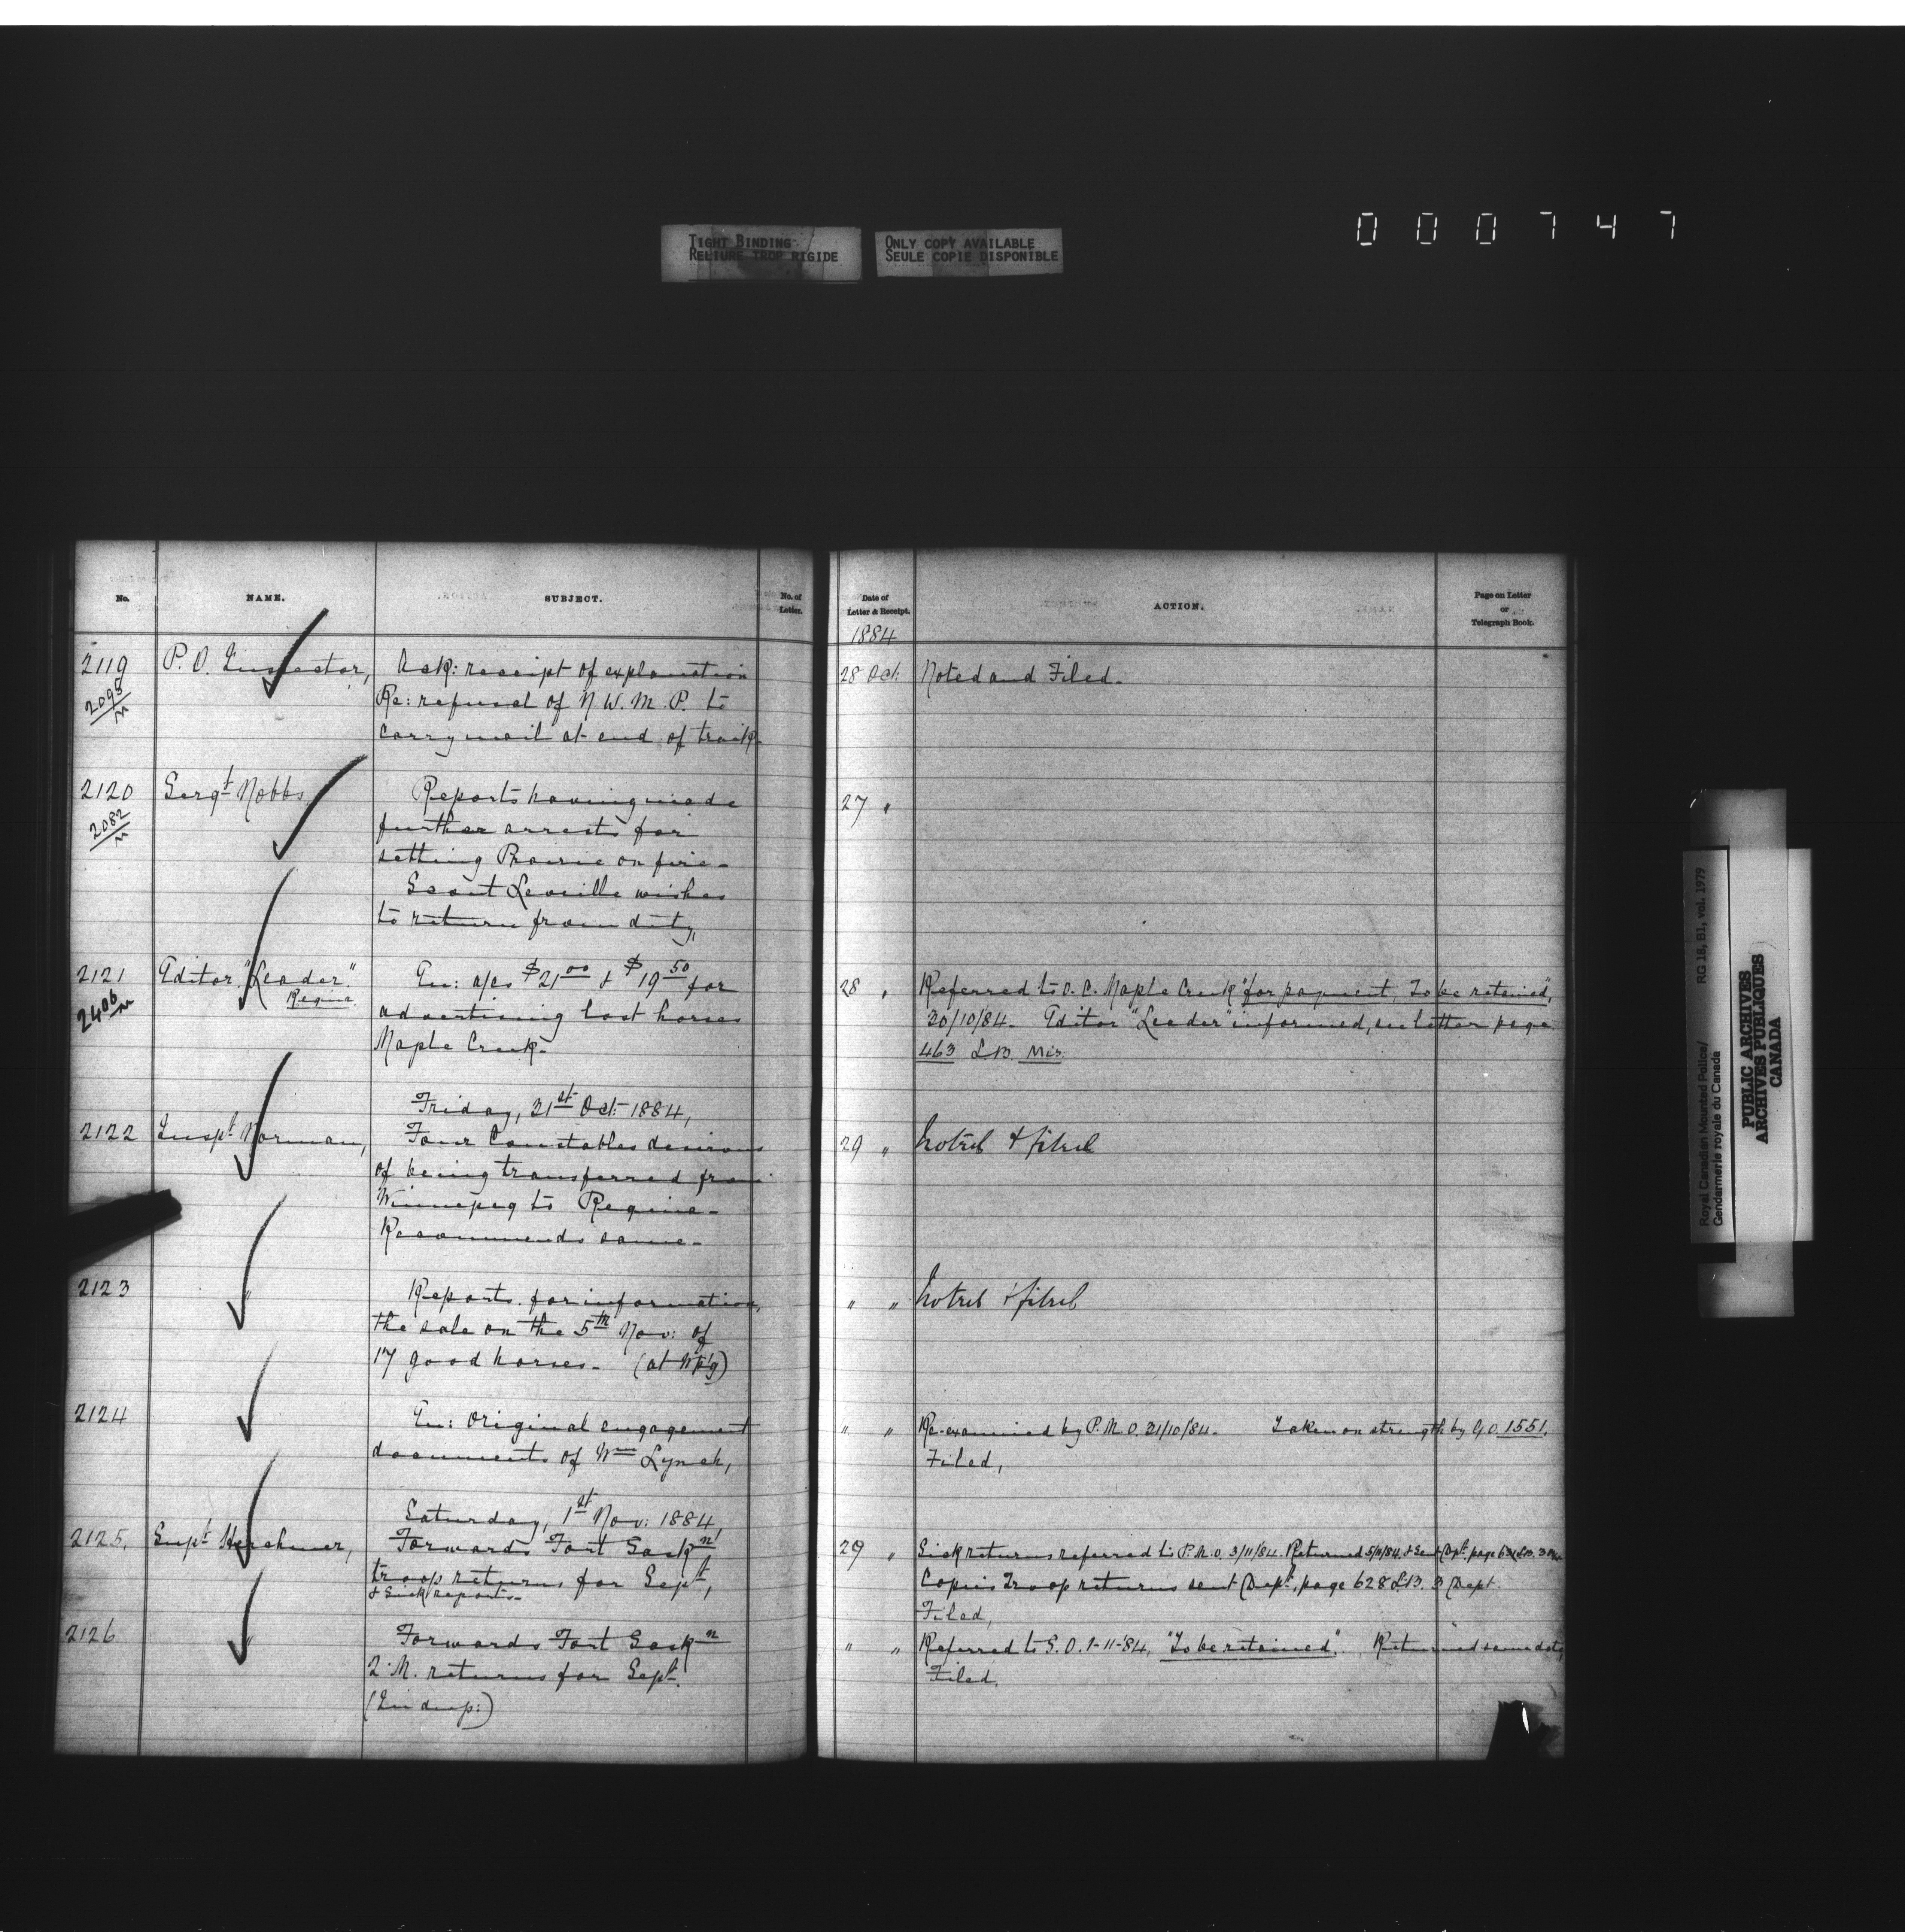 000747
TIGHT BINDING
RELIURE TROP RIGIDE
ONLY COPY AVAILABLE
SEULE COPIE DISPONIBLE
No.
NAME.
SUBJECT.
No. of
Letter.
Date of
Letter & Receipt.
ACTION.
Page on Letter
or
Telegraph Book.
1884
2119
2095/M
P. O. Inspector,
Ack: receipt of explanation
Re: refusal of N. W. M. P. to
carry mail at end of track
28 Oct:
Noted and Filed.
2120
2082/M
Sergt Nobbs
Reports having made
further arrests for
setting Prairie on fire -
Scout Leveille wishes
to return from duty,
27 "
2121
2406/M
Editor "Leader"
Regina
En: a/cs $21 00 & $19 50 for
advertising lost horses
Maple Creek -
28 "
Referred to O. C. Maple Creek "for payment, To be retained",
30/10/84. Editor "Leader" informed, see letter page
463 L.B. Mis.
Friday, 31st Oct: 1884,
2122
Inspt Norman,
Four Constables desirous
of being transferred from
Winnepeg to Regina -
Recommends same -
29 "
Noted & filed
2123
"
Reports for information,
the sale on the 5th Nov: of
17 good horses - (at Wpg)
" "
Noted & filed
2124
En: original engagement
documents of Wm Lynch,
" "
Re-examined by P. M. O. 31/10/84. Taken on strength by G.O. 1551.
Filed,
Saturday, 1st Nov: 1884
2125,
Supt Herchmer,
Forwards Fort Saskn
troop returns for Sept,
& Sick reports -
29 "
Sick returns referred to P. M. O. 3/11/84. Returned 5/11/84. & Sent Dept. page
Copies Troop returns sent Dept, page 628 L.B. 3 Dept.
Filed,
2126
"
Forwards Fort Saskn
Q. M. returns for Sept.
(In dup:)
" "
Referred to S. O. 1-11-'84, "To be retained". Returned same date,
Filed,
Royal Canadian Mounted Police/
Gendarmerie royale du Canada
RG 18, B1, vol. 1979
PUBLIC ARCHIVES
ARCHIVES PUBLIQUES
CANADA